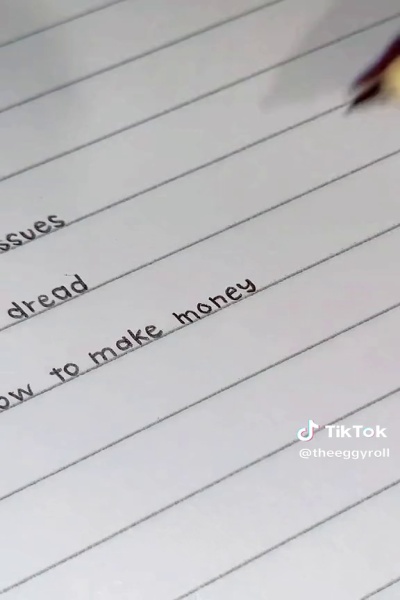 ssues
dread
ow to make money
TikTok
@theeggyroll